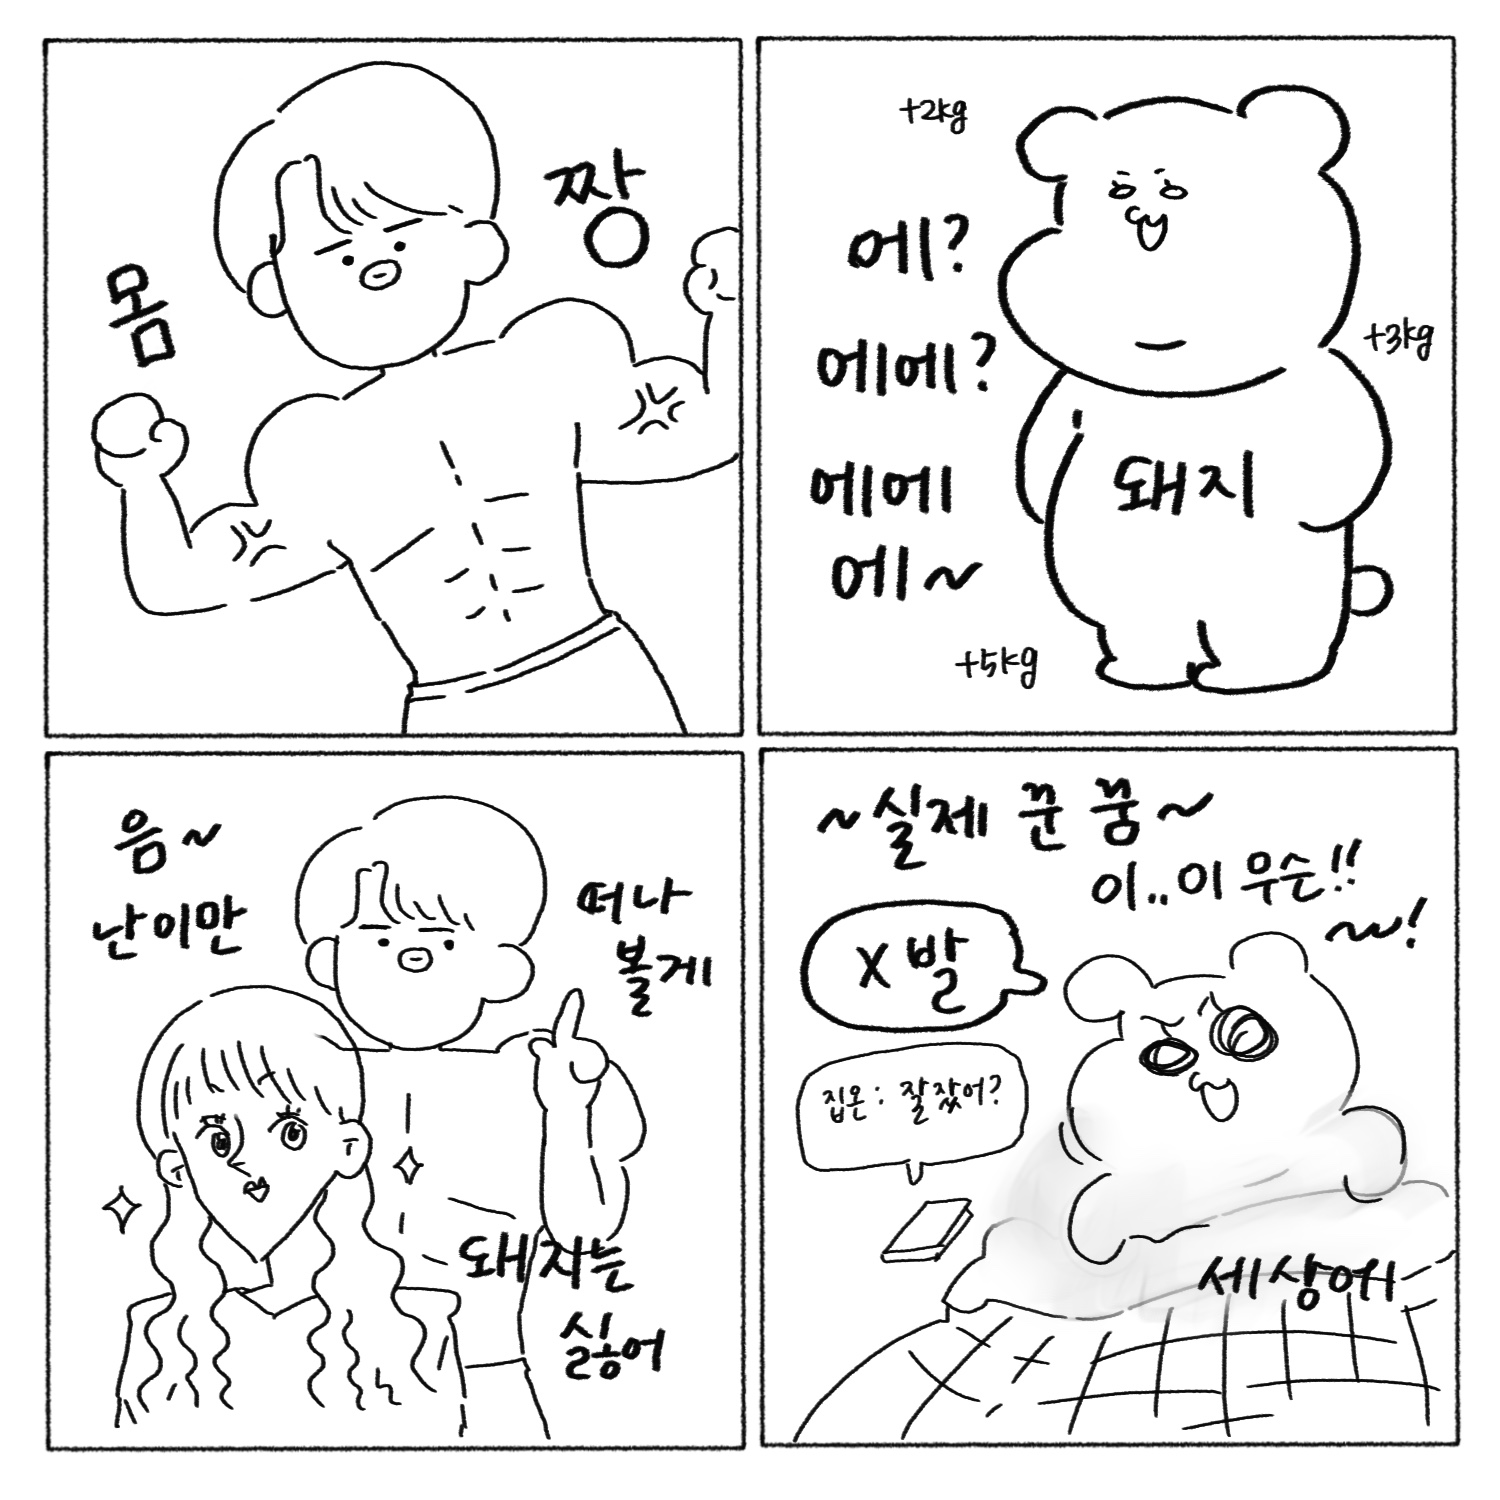 몸
짱
+2kg
에?
에에?
+3kg
에에
에~
돼지
+5kg
음~
난이만
떠나
볼게
돼지는
싫어
~실제 꾼 꿈~
이..이 우슨!!
~!
X발
집온: 잘잤어?
세상에